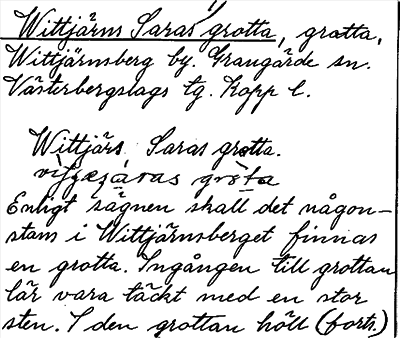 Wittjärns Saras grotta, grotta,
Wittjärnsberg by. Grangärde sn.
Västerbergslags tg. Kopp l.
Wittjärs Saras grotta.
Enligt sägnen skall det någon-
stans i Wittjärnsberget finnas
en grotta. Ingången till grottan
lär vara täckt med en stor
sten. I den grottan höll (forts.)